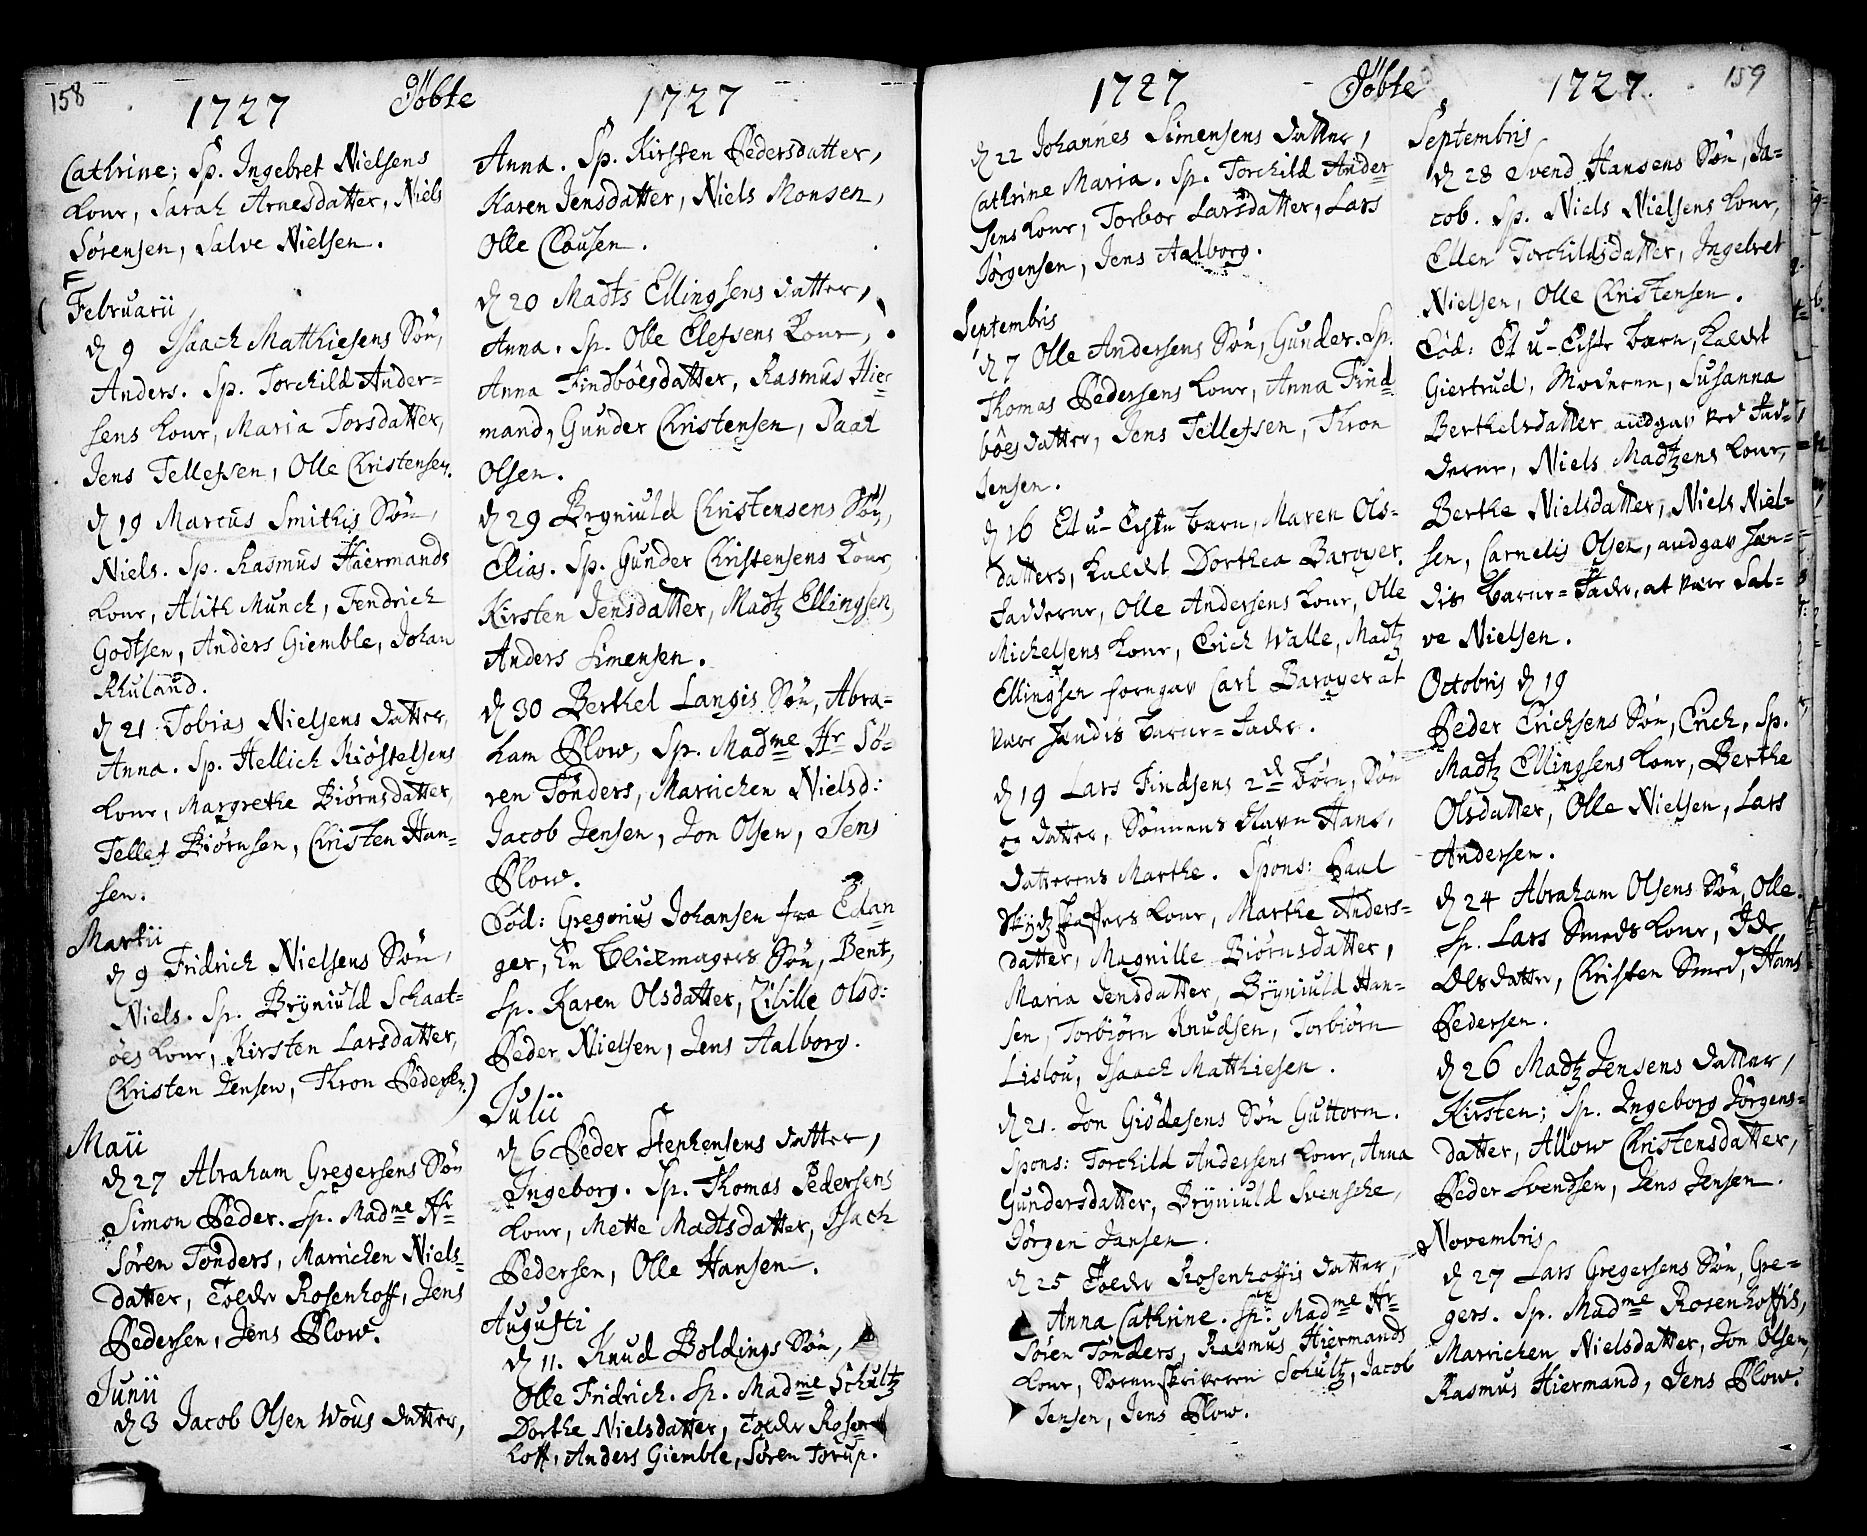 158
1727 Döbte 1727
Cathrine; Sp. Ingebret Nielsens
Kone, Sarah Arnesdatter, Niels
Sørensen, Salve Nielsen.
F
Februarii
d 9 Isaach Matthiesens Søn,
Anders. Sp. Torchild Ander=
sens Kone, Maria Torsdatter,
Jens Tellefsen, Olle Christensen.
d 19 Marcus Smithis Søn,
Niels. Sp. Rasmus Haermands
Kone, Alith Munch, Fendrich
Godtsen, Anders Giemble, Johan
Rhuland.
d 21 Tobias Nielsens datter,
Anna. Sp. Hellich Kiøstelsens
Kone, Margrethe Biørnsdatter,
Tellef Biørnsen, Christen Han=
sen.
Martii
d 9 Fridrich Nielsens Søn,
Niels. Sp. Bryniuld Schaat=
öes Kone, Kirsten Larsdatter,
Christen Jensen, Thron Pedersen.)
Maii
d 27 Abraham Gregersens Søn
Simon Peder. Sp. Madme Hr
Søren Tønders, Marrichen Niels=
datter, Toldr Rosenhoff, Jens
Pedersen, Jens Plow.
Junii
d 3 Jacob Olsen Wous datter,
Anna. Sp. Kirsten Pedersdatter,
Karen Jensdatter, Niels Monsen,
Olle Clausen.
d 20 Madts Ellingsens datter,
Anna. Sp. Olle Elefsens Kone,
Anna Findböesdatter, Rasmus Hier=
mand, Gunder Christensen, Paal
Olsen.
d 29 Bryniuld Christensens Søn,
Elias. Sp. Gunder Christensens Kone,
Kirsten Jensdatter, Madtz Ellingsen,
Anders Simensen.
d 30 Berthel Langis Søn, Abra=
ham Plow, Sp. Madme Hr Sø=
ren Tønders, Marrichen Nielsd:
Jacob Jensen, Jon Olsen, Jens
Plow.
Eod: Gregorius Johansen fra Edan
ger, En Blickmagers Søn, Bent,
Sp. Karen Olsdatter, Zibille Olsd:
Peder Nielsen, Jens Aalborg.
Julii
d 6 Peder Stephensens datter,
Ingeborg. Sp. Thomas Pedersens
Kone, Mette Madtsdatter, Isach
Pedersen, Olle Hansen.
Augusti
d 11. Knud Boldings Søn,
Olle Fridrich. Sp. Madme Schultz
Dorthe Nielsdatter, Toldr Rosen
hoff, Anders Giemble, Søren Torup.
1727 Döbte 1727. 159
d 22 Johannes Simensens datter,
Cathrine Maria. Sp. Torchild Ander
sens Kone, Torbor Larsdatter, Lars
Jørgensen, Jens Aalborg.
Septembris
d 7 Olle Andersens Søn, Gunder. Sp.
Thomas Pedersens Kone, Anna Find
böesdatter, Jens Tellefsen, Thron
Jensen.
d 16 Et u-Egte barn, Maren Ols=
datters, kaldet Dorthea Baroyer.
Fadderne, Olle Andersens Kone, Olle
Michelsens Kone, Erich Walle, Madtz
Ellingsen forregav Carl Baroyer at
være Hendis Barne=Fader.
d 19 Lars Findsens 2de Børn, Søn
og datter, Sønnens Navn Hans,
Datterens Marthe. Spons: Paul
Skydtzskaffers Kone, Marthe Anders=
datter, Magnille Biørnsdatter,
Maria Jensdatter, Bryniuld Han=
sen, Torbiørn Knudsen, Torbiørn
Lislou, Isaach Matthiesen.
d 21. Jon Giödesens Søn Guttorm.
Spons: Torchild Andersens Kone, Anna
Gundersdatter, Bryniuld Svensche,
Jørgen Jansen.
d 25 Toldr Rosenhoffis datter,
Anna Cathrine. Sp: Madme Hr
Søren Tønders, Rasmus Hiermands
Kone, Sorenskriveren Schultz, Jacob
Jensen, Jens Plow.
Septembris
d 28 Svend Hansens Søn, Ja=
cob. Sp. Niels Nielsens Kone,
Ellen Torchildsdatter, Ingebret
Nielsen, Olle Christensen.
Eod: Et u-Egte Barn, kaldet
Giertrud, Moderen, Susanna
Berthelsdatter audgav ved Fad=
derne, Niels Madtzens Kone,
Berthe Nielsdatter, Niels Niel=
sen, Carnelis Olsen, audgav Hen=
dis Barne=Fader, at være Sal=
ve Nielsen.
Octobris d 19
Peder Erichsens Søn, Erich, Sp.
Madtz Ellingsens Kone, Berthe
Olsdatter, Olle Nielsen, Lars
Andersen.
d 24 Abraham Olsens Søn, Olle.
Sp. Lars Smeds Kone, Ide
Olsdatter, Christen Smed, Hans
Pedersen.
d 26 Madtz Jensens datter,
Kirsten; Sp. Ingeborg Jørgens=
datter, Allow Christensdatter,
Peder Svendsen, Jens Jensen.
Novembris
d 27 Lars Gregersens Søn, Gre=
gers. Sp. Madme Rosenhoffis,
Marrichen Nielsdatter, Jon Olsen,
Rasmus Hiermand, Jens Plow.